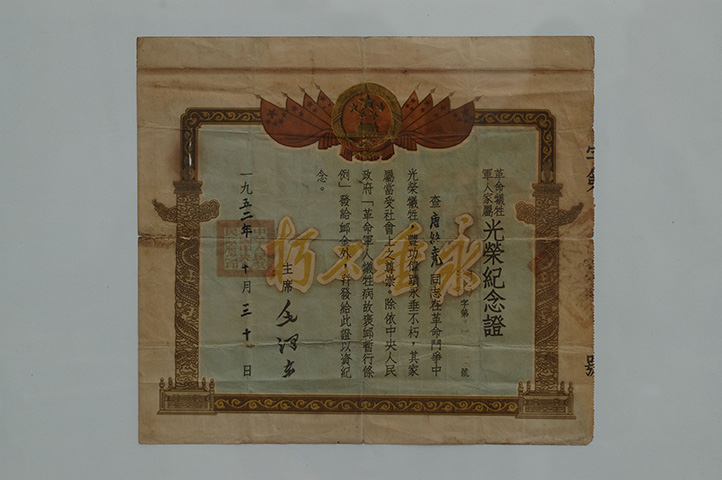 革命犧牲
軍人家屬
光榮紀念證
字第　號
查唐　　同志在革命鬥爭中
光榮犧牲，豐功偉蹟永垂不朽，其家
屬當受社會上之尊崇。除依中央人民
政府「革命軍人犧牲病故褒卹暫行條
例」發給卹金外，并發給此證以資紀
念。
主席 毛澤東
一九五二年十月三十日
永垂不朽
號